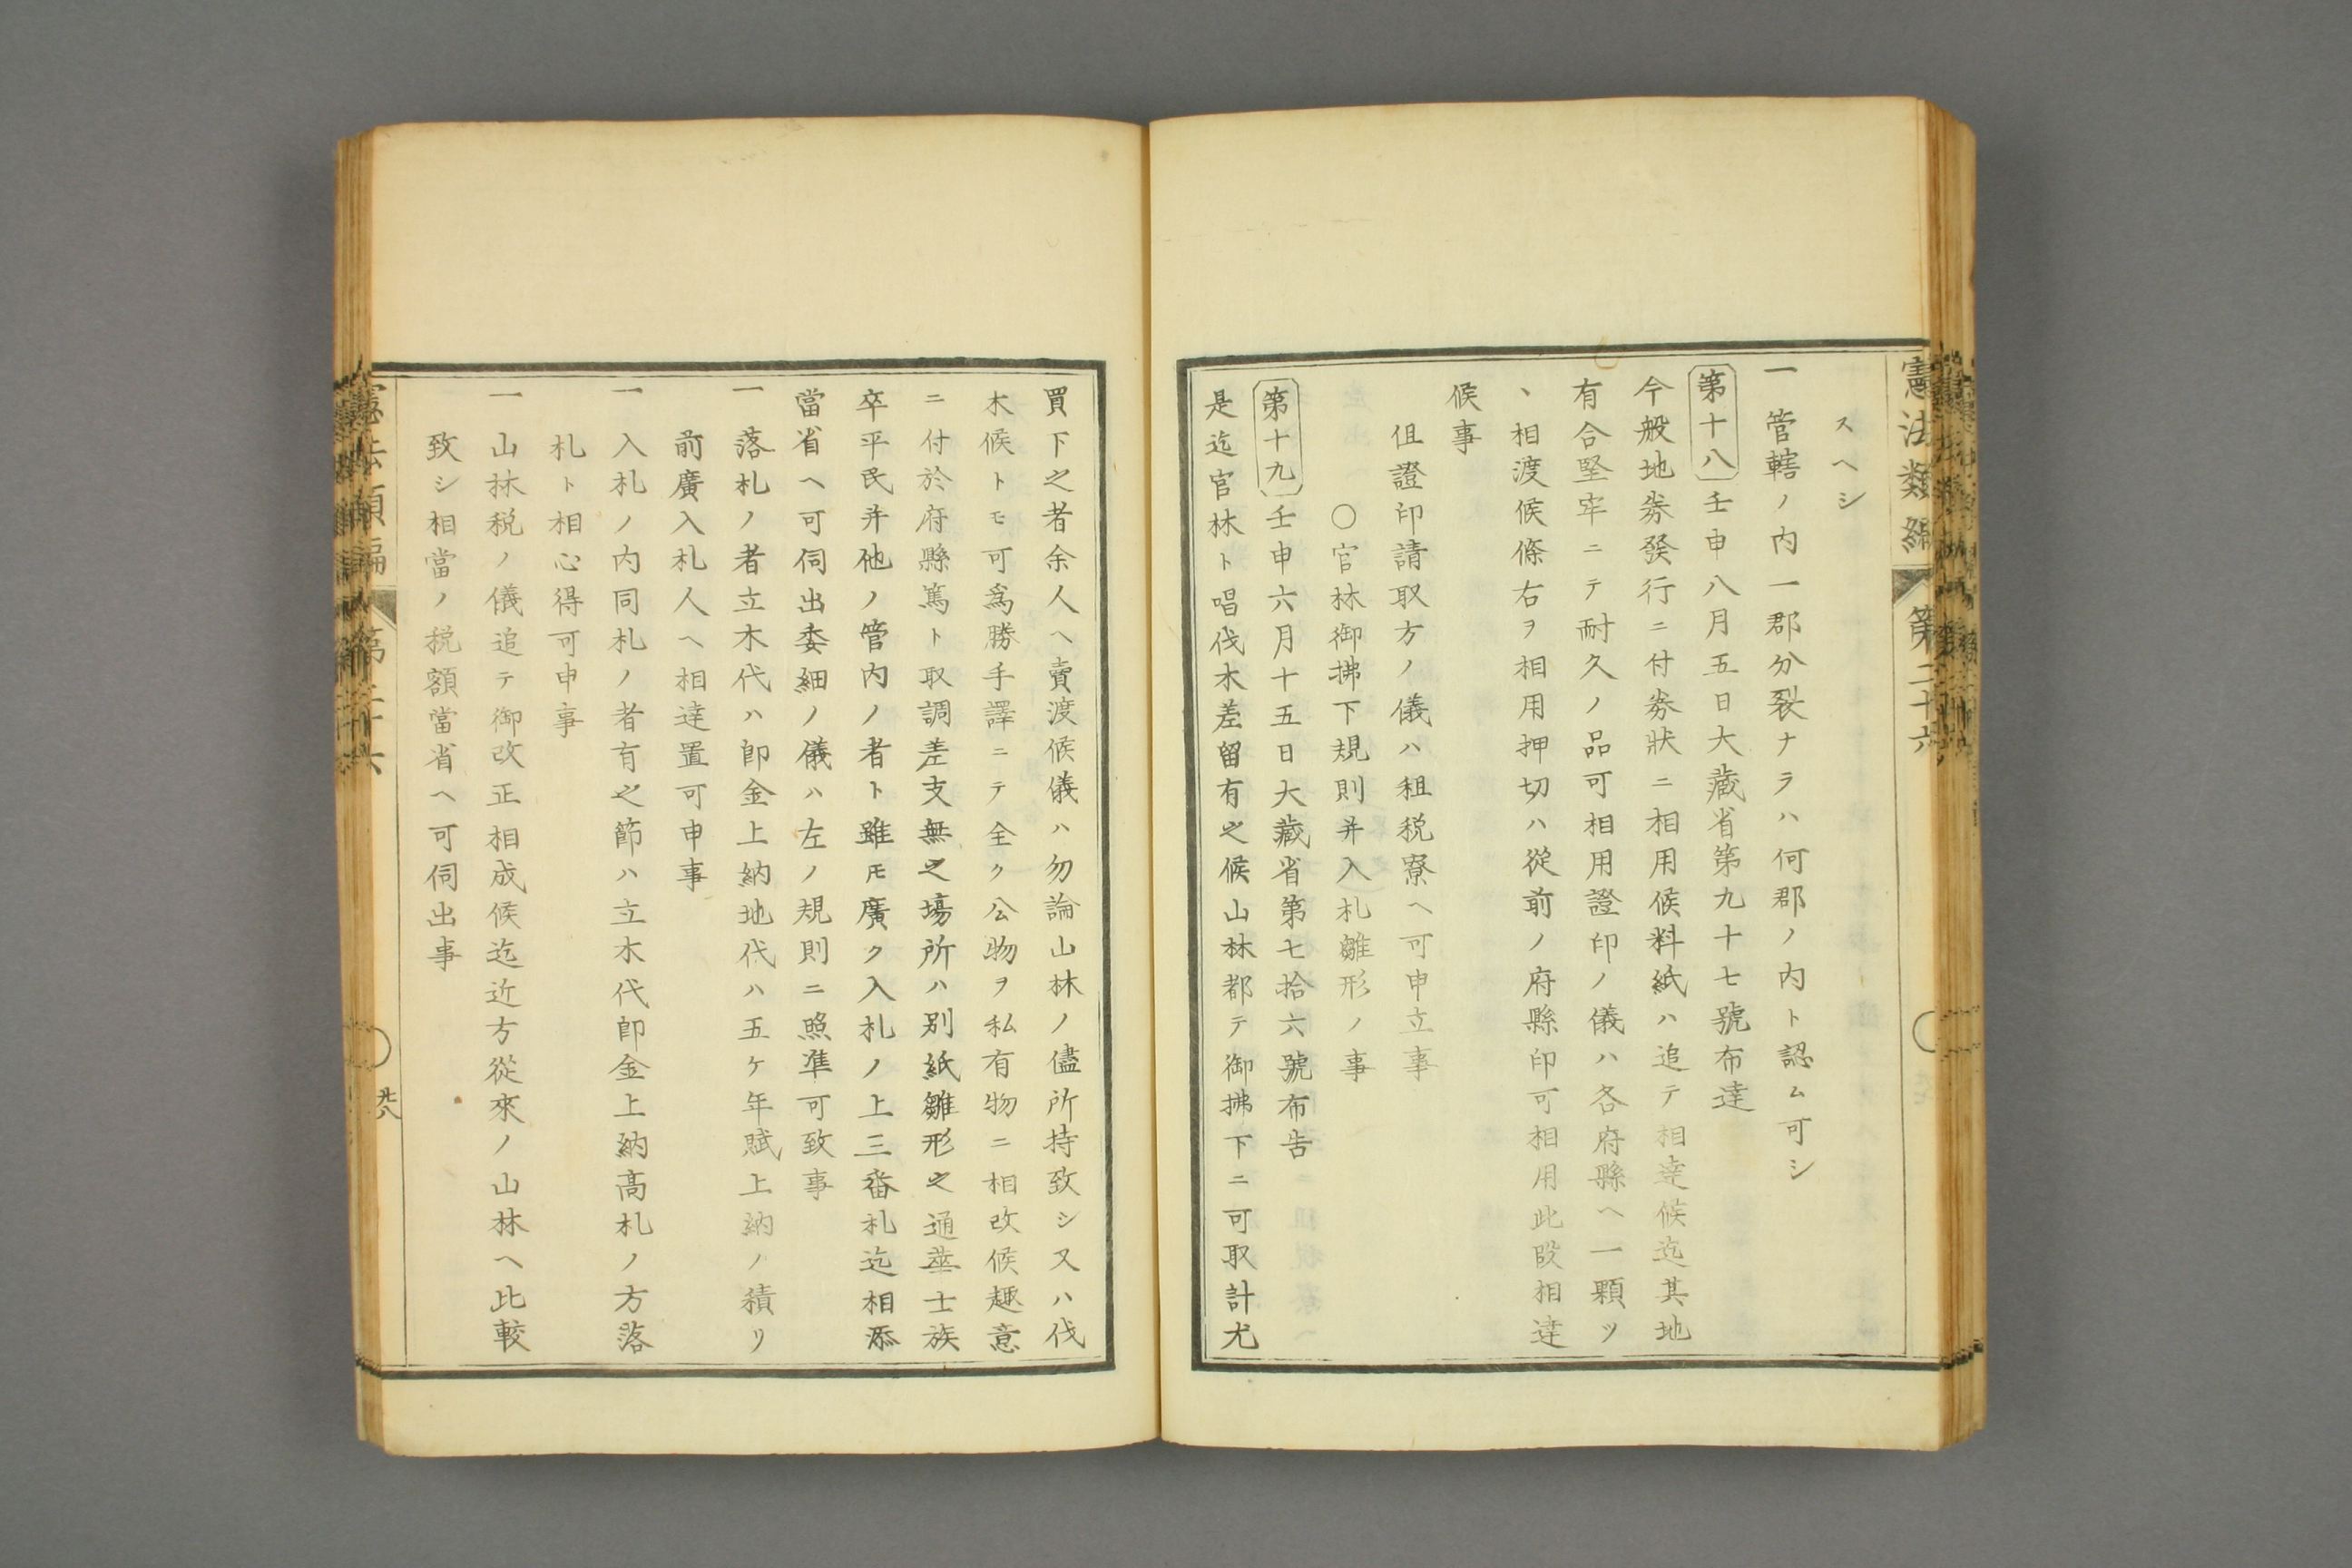 憲法類編 第二十六
スヘシ
一 管轄ノ内一郡分裂ナラハ何郡ノ内ト認ム可シ
第十八 壬申八月五日大藏省第九十七號布達
今般地券發行ニ付券狀ニ相用候料紙ハ追テ相達候迄其地
有合堅牢ニテ耐久ノ品可相用證印ノ儀ハ各府縣ヘ一顆ツ
ヽ相渡候條右ヲ相用押切ハ從前ノ府縣印可相用此段相達
候事
但證印請取方ノ儀ハ租税寮ヘ可申立事
○官林御拂下規則并入札雛形ノ事
第十九 壬申六月十五日大藏省第七拾六號布告
是迄官林ト唱伐木差留有之候山林都テ御拂下ニ可取計尤
買下之者余人ヘ賣渡候儀ハ勿論山林ノ儘所持致シ又ハ伐
木候トモ可爲勝手譯ニテ全ク公物ヲ私有物ニ相改候趣意
ニ付於府縣篤ト取調差支無之塲所ハ別紙雛形之通華士族
卒平民并他ノ管内ノ者ト雖モ廣ク入札ノ上三番札迄相添
當省ヘ可伺出委細ノ儀ハ左ノ規則ニ照準可致事
一 落札ノ者立木代ハ卽金上納地代ハ五ケ年賦上納ノ積リ
前廣入札人ヘ相達置可申事
一 入札ノ内同札ノ者有之節ハ立木代卽金上納高札ノ方落
札ト相心得可申事
一 山林税ノ儀追テ御改正相成候迄近方從來ノ山林ヘ比較
致シ相當ノ税額當省ヘ可伺出事
憲法類編 第二十六